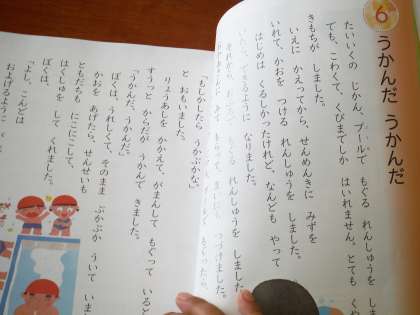 6
うかんだ うかんだ
たいいくの じかん、プールで もぐる れんしゅうを しまし
でも、こわくて、くびまでしか はいれません。とても くや
きもちが しました。
いえに かえってから、せんめんきに みずを
いれて、かおを つける れんしゅうを しました。
はじめは くるしかったけれど、なんども やって
できるように なりました。
もぐる れんしゅうを しました
つづけました。
「もしかしたら うかぶかな」
と おもいました。
りょうあしを かかえて、がまんして もぐって いると
すうっと からだが うかんで きました。
「うかんだ、うかんだ」
ぼくは、うれしくて、そのまま ぷかぷか ういて いま
かおを あげたら、せんせいも
ともだちも にこにこして、
はくしゅを して くれました。
ぼくは、
「よし、こんどは
およげるように